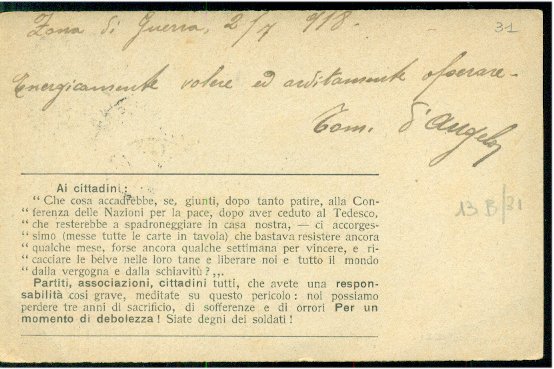 Zona di Guerra, 2/7 918.
31
Energicamente volere ed arditamente operare.
Tom. d'Angelo
Ai cittadini,:
“ Che cosa accadrebbe, se, giunti, dopo tanto patire, alla Con-
“ ferenza delle Nazioni per la pace, dopo aver ceduto al Tedesco,
“ che resterebbe a spadroneggiare in casa nostra, — ci accorges-
“ simo (messe tutte le carte in tavola) che bastava resistere ancora
“ qualche mese, forse ancora qualche settimana per vincere, e ri-
“ cacciare le belve nelle loro tane e liberare noi e tutto il mondo
“ dalla vergogna e dalla schiavitù ? „.
Partiti, associazioni, cittadini tutti, che avete una respon-
sabilità così grave, meditate su questo pericolo : noi possiamo
perdere tre anni di sacrificio, di sofferenze e di orrori Per un
momento di debolezza ! Siate degni dei soldati !
13 B/31